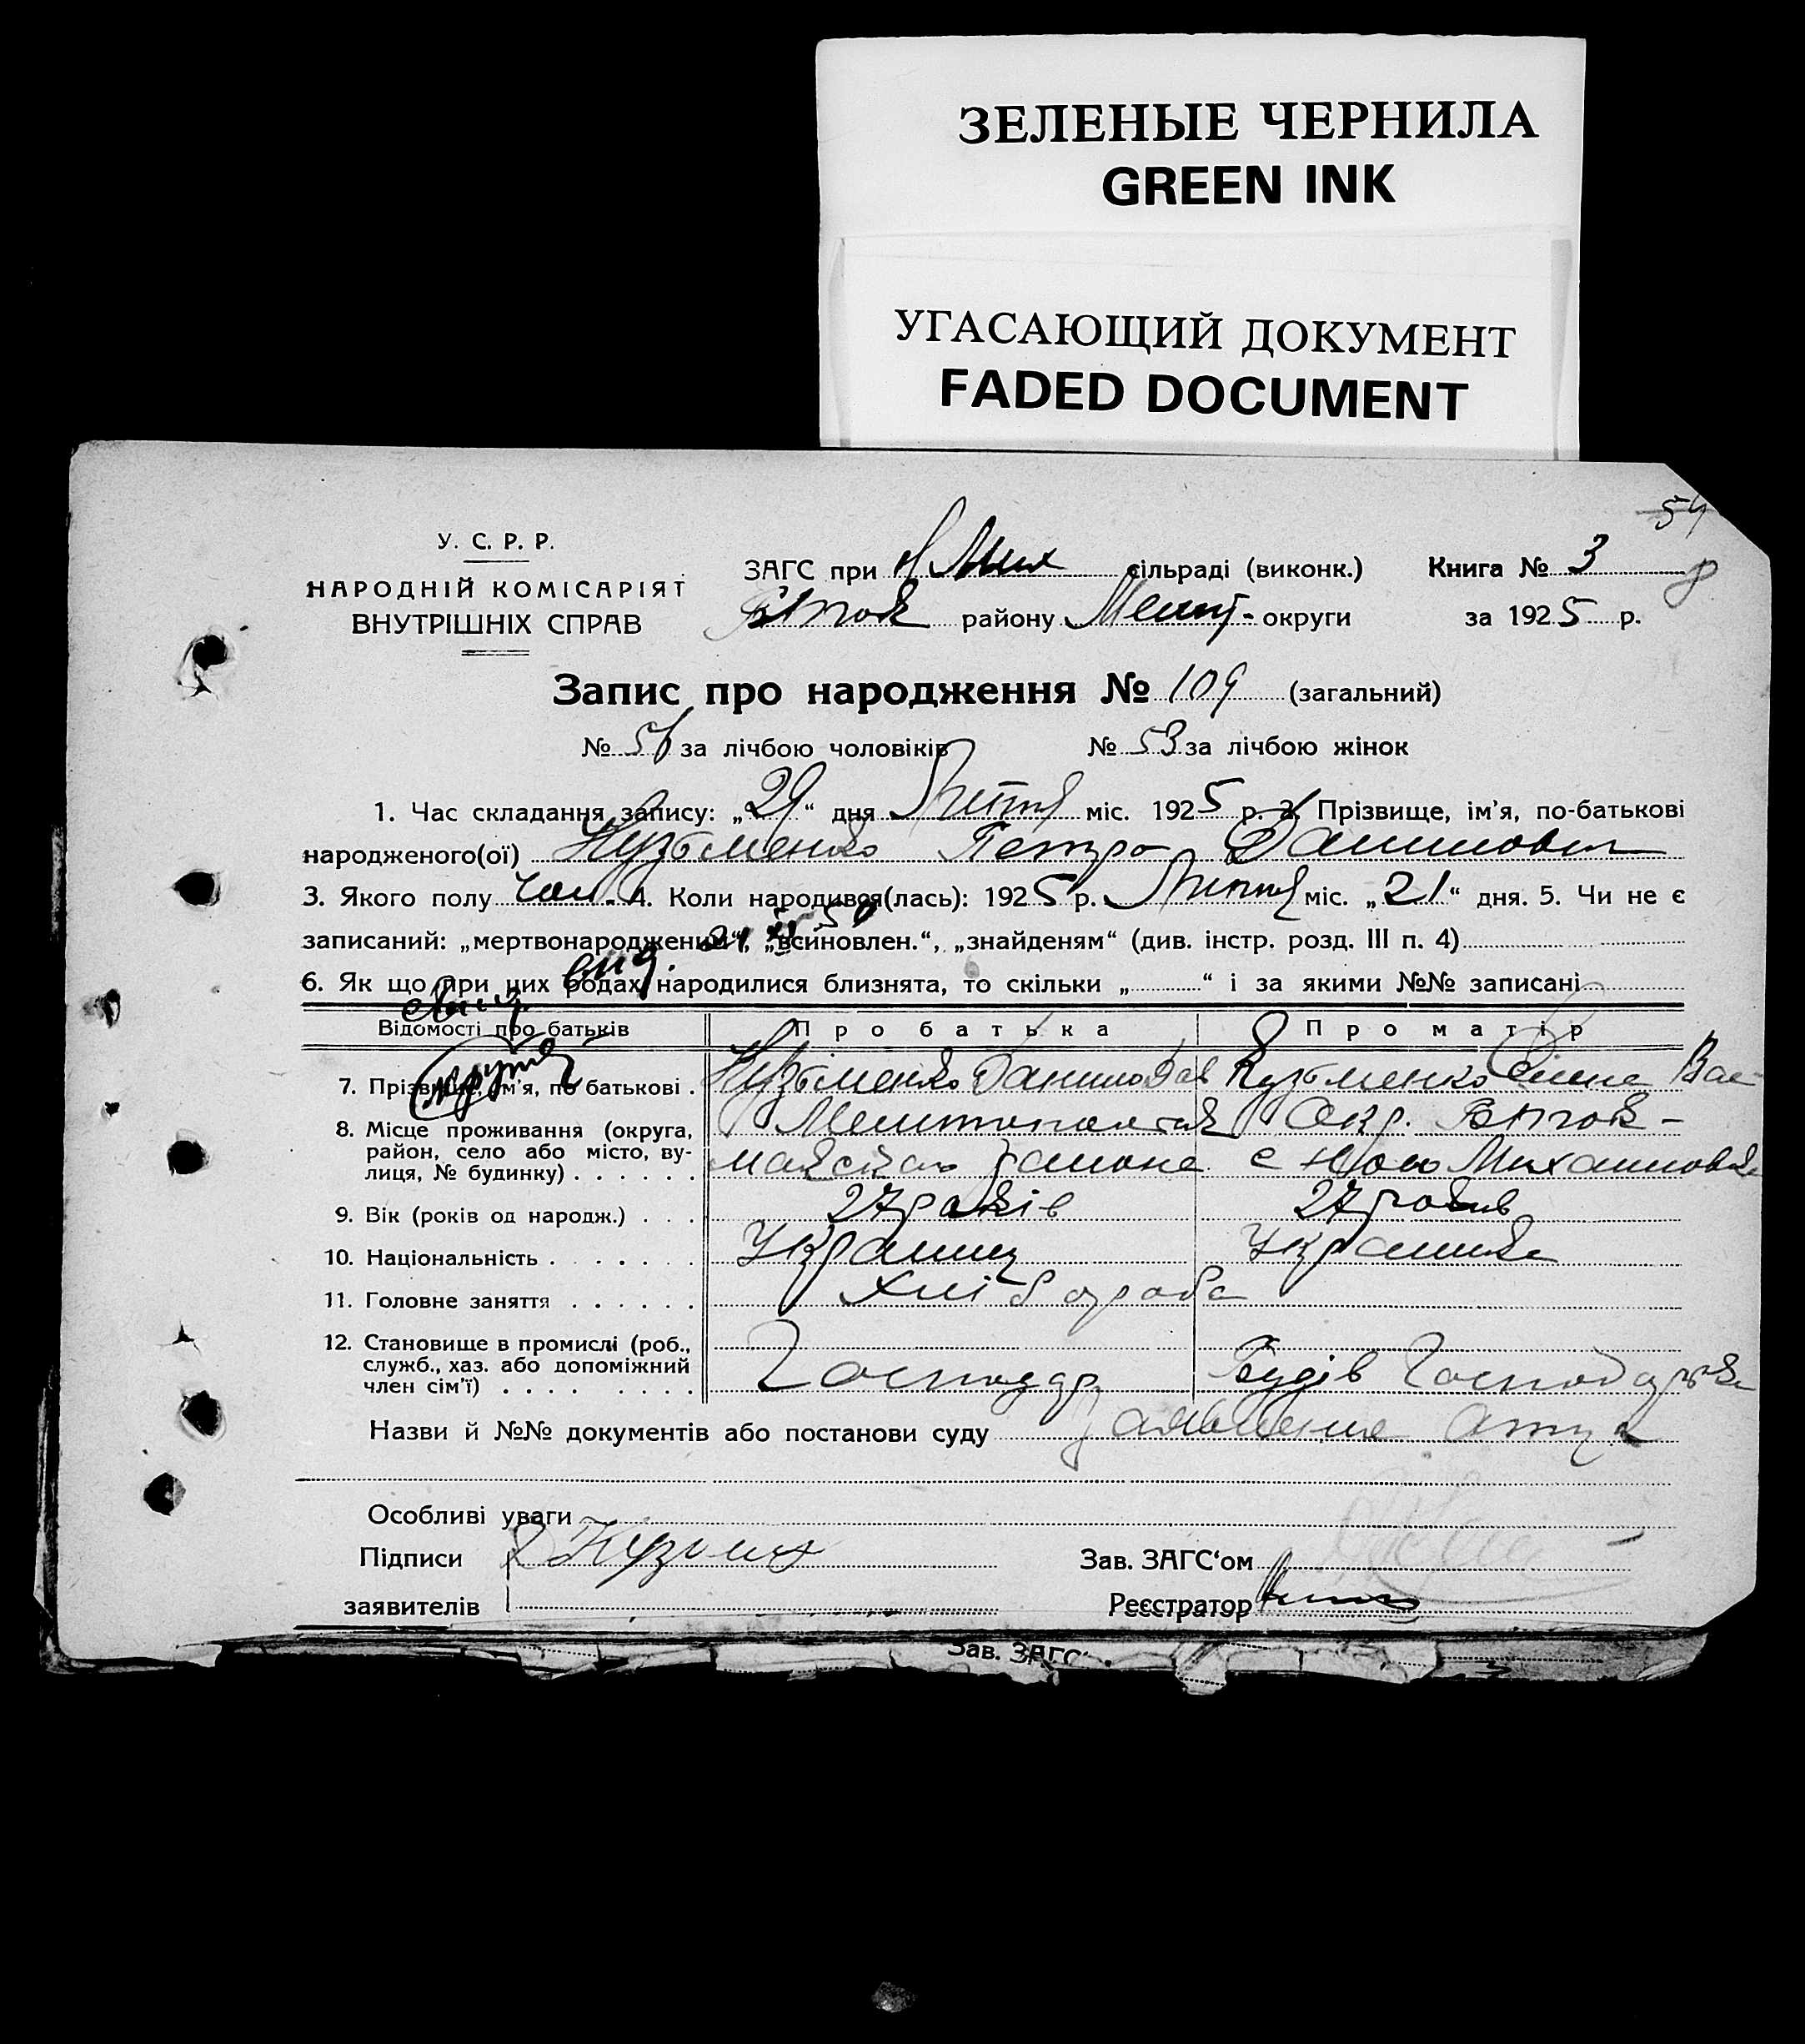 ЗЕЛЕНЫЕ ЧЕРНИЛА
GREEN INK
УГАСАЮЩИЙ ДОКУМЕНТ
FADED DOCUMENT
54
У. С. Р. Р.
НАРОДНІЙ КОМІСАРІЯТ
ВНУТРІШНІХ СПРАВ
ЗАГС при Н Мих сільраді (виконк.) Книга № 3
району Меліт- округи за 1925 р.
Запис про народження № 109 (загальний)
№ 56 за лічбою чоловіків № 53 за лічбою жінок
1. Час складання запису: „29“ дня Липня міс. 1925 р. 2. Прізвище, ім'я, по-батькові
народженого(ої) Кузьменко Петро Данилович
3. Якого полу чол. 4. Коли народився(лась): 1925 р. Липня міс. „21“ дня. 5. Чи не є
записаний: „мертвонароджений“, „всиновлен.“, „знайденям“ (див. інстр. розд. III п. 4)
6. Як що при цих родах народилися близнята, то скільки „ “ і за якими №№ записані
Відомості про батьків Про батька Про матір
7. Прізвище, ім'я, по батькові . Кузьменко Данило Дав Кузьменко Вас
8. Місце проживання (округа, район, село або місто, вулиця, № будинку) . . . . . . Окр.
району с Ново Михайловка
9. Вік (років од народж.) . . . 27 років 27 років
10. Національність . . . . . . . Українец Українка
11. Головне заняття . . . . . . Хлібороба
12. Становище в промислі (роб.,
служб., хаз. або допоміжний
член сім'ї) . . . . . . . . . Господар Господарка
Назви й №№ документів або постанови суду заявление отца
Особливі уваги
Підписи Д Кузьм Зав. ЗАГС'ом
заявителів Реєстратор
Зав. ЗАГС